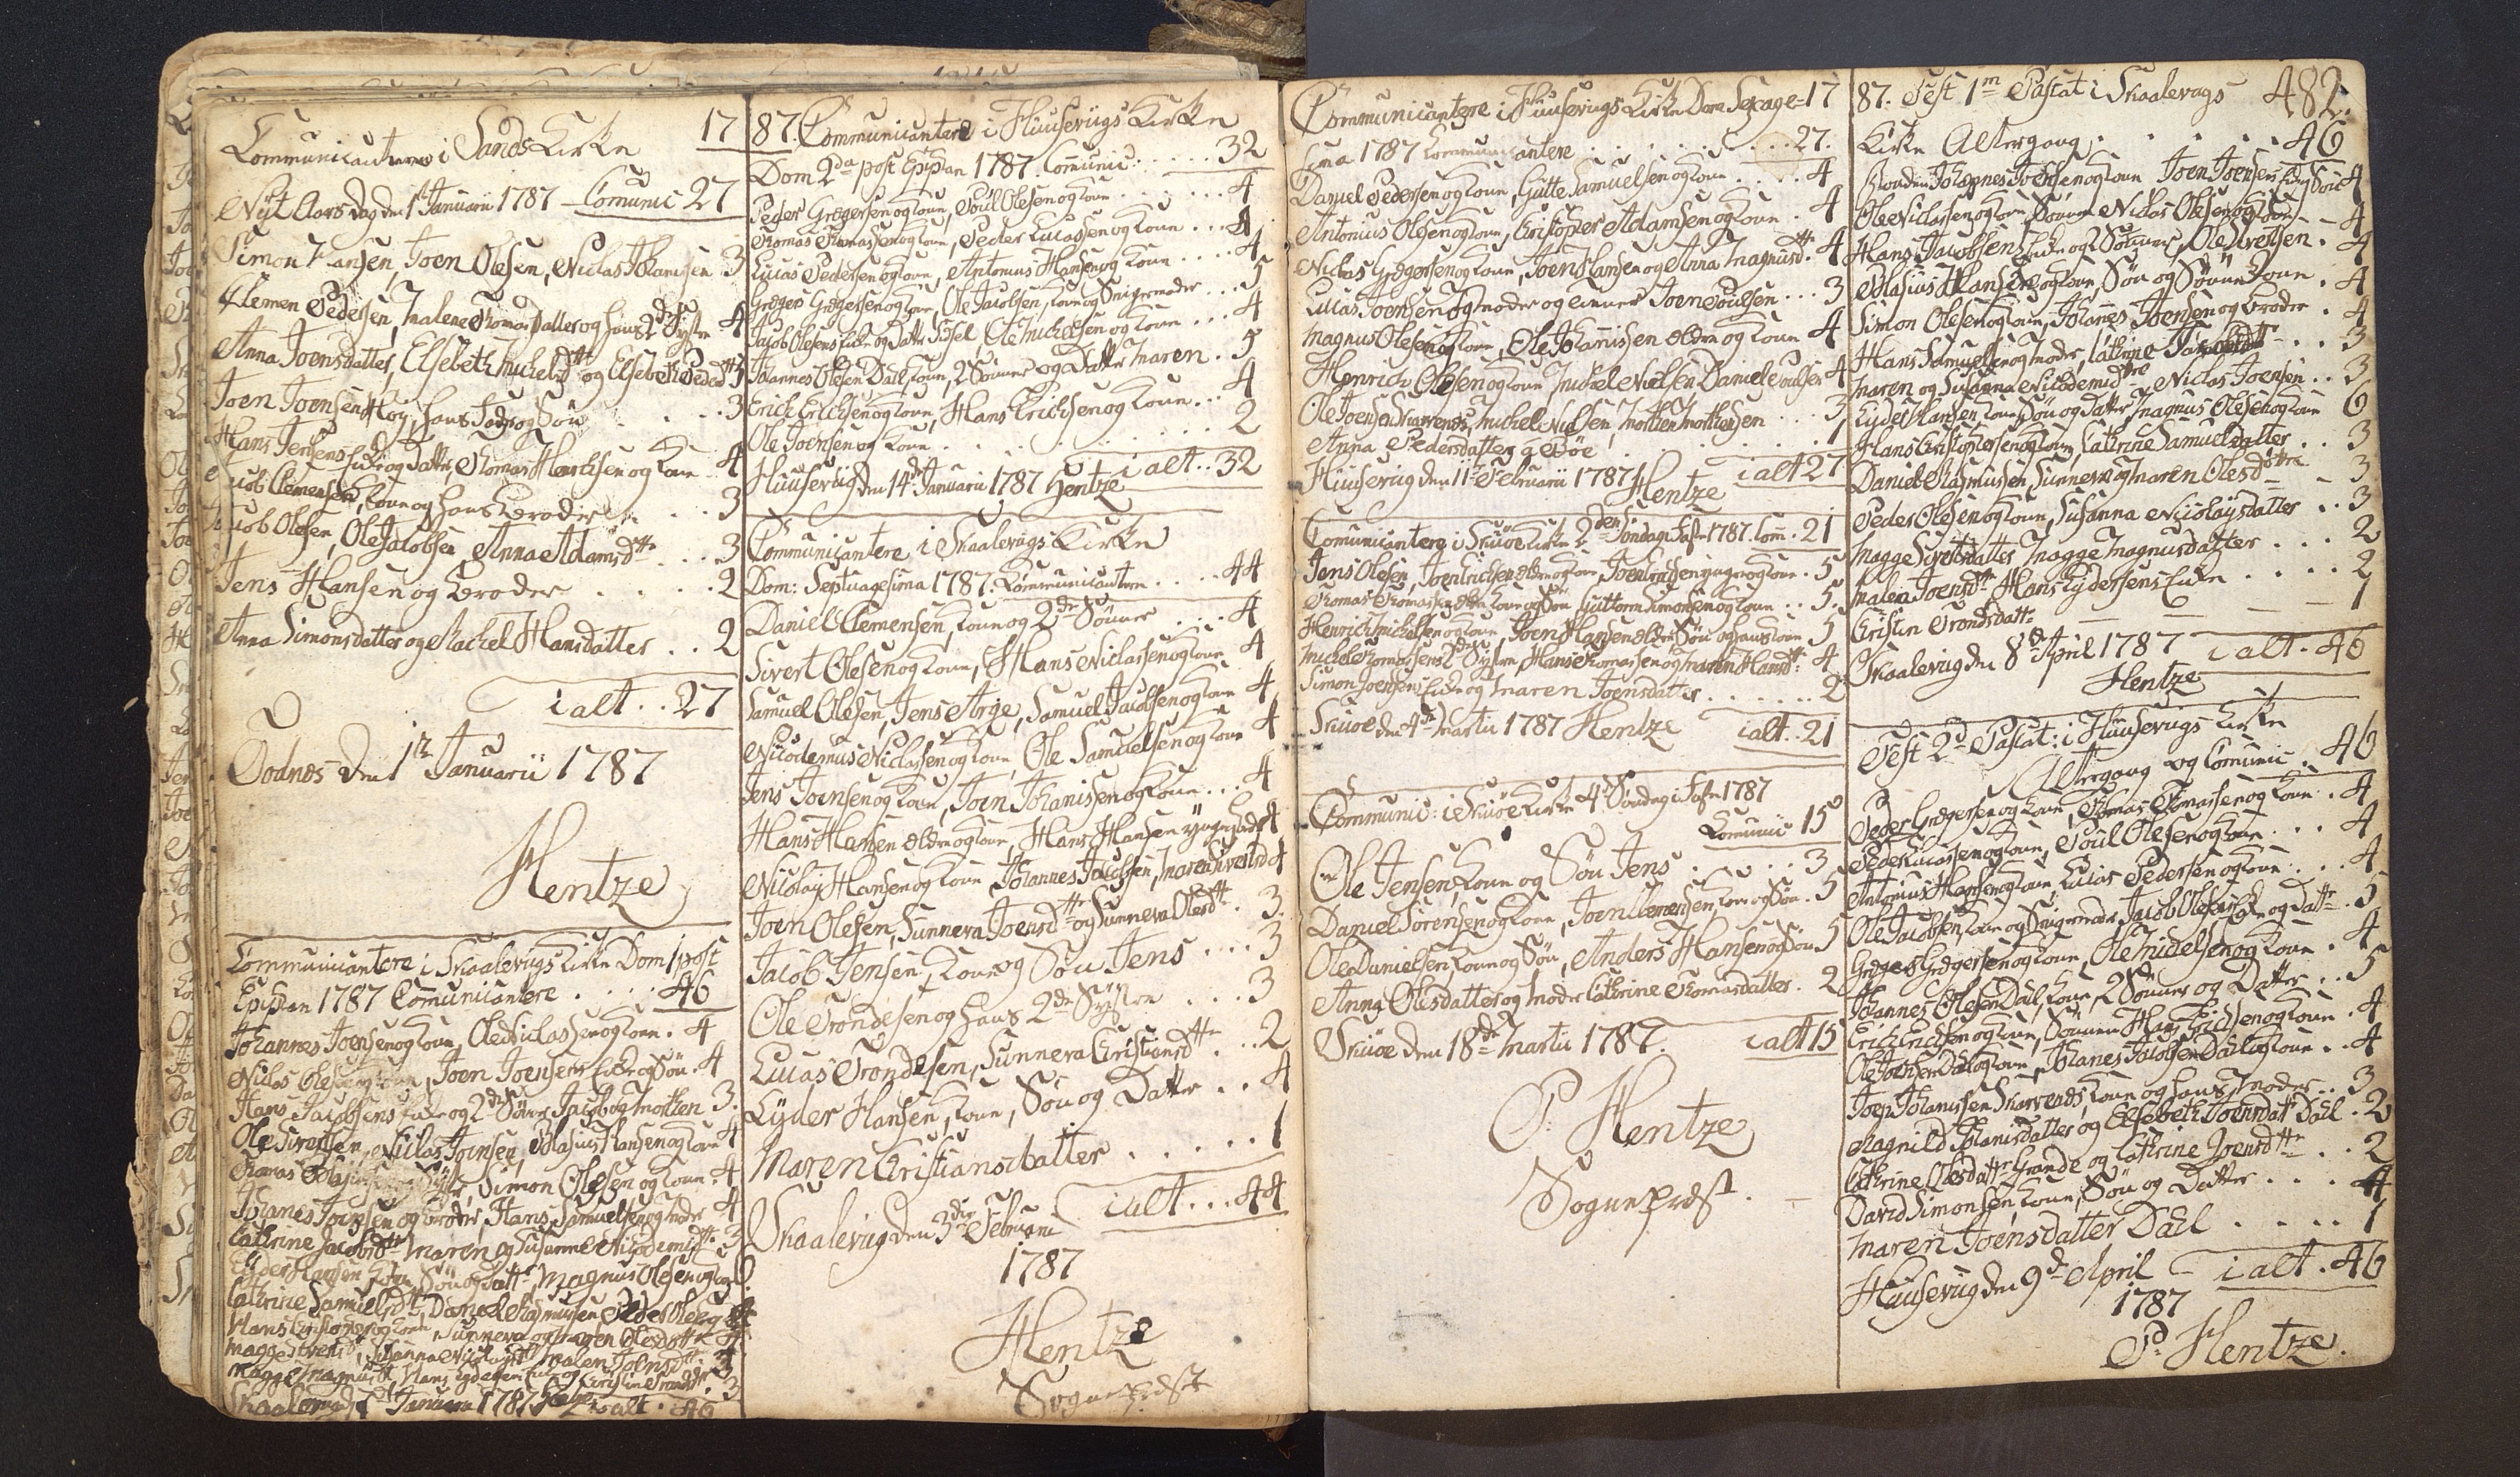 Communicantere i Sands Kirke
Nyt Aars Dag den 1te Januarii 1787 – Comunic 27
Simon Hansen, Joen Olesen, Niclas Johansen 3
Clemen Pedersen, Malene Thomasdatter og hans 2de Syster 4
Anna Joensdatter, Elsebeth Michelsdttr og Elsebeth Pedersd 3
Joen Joensen Høy, hans og Søn . . . 3
Hans Jensens Enke og Datter, Thomas og Kone . 4
Jacob Clemensen, Kone og hans Broder . . . 3
Jacob Olesen, Ole Jacobsen Anna Adamsdtr . . . 3
Jens Hansen og Broder . . . . 2
Anna Simonsdatter og Rachel Hansdatter . . 2
i alt . . 27
den 1te Januarii 1787
Hentze
Communicantere i Skaalevigs Kirke Dom 1 post
Epiphan 1787 Comunicantere . . . . 46
Johannes Joensen og Kone, Ole Niclassen og Kone . 4
Niclas Olesen og Kone, Joen Joensens Enke og Søn . 4
Hans Jacobsens Enke og 2de Sønner Jacob og Morten 3.
Ole Sivertsen, Niclas Joensen, Blasius Hansen og Kone 4
Thomas, Simon Olesen og Kone . 4
Johanes Joensen og Broder, Hans Samuelsen og Moder 4
Cathrine Jacobsdtr Maren og Susanne Nicodemidttr 3
Eyder Hansen Kone Søn og Dattr, Magnus Olesen og Kone 6.
Cathrine Samuelsdtr, Daniel Rasmussen
Hans Christophersen og Kone, Sunneva og Maren Olesdttr 4
Magge Sivertsd, Susanna Nicolaysdtr Malen Joensdtr 3
Magge Magnusdtr Hans Eydersens Enke og Cristin Trondsdr 3
Skaalevig d 7de Januarii 1787 Hentze i alt . 46
17
87. Communicantere i Huusevigs Kirke
Dom 2da post Epiphan 1787 Comunic . . . . 32
Peder Gregersen og Kone, Poul Olesen og Kone . . . . 4
Thomas Thomassen og Kone, Peder Lucassen og Kone . . . 4
Lucas Pedersen og Kone, Antonius Hansen og Kone . . . . 4
Gregers Gregersen og Kone, Ole Jacobsen, Kone og Svigermoder . . . 5
Jacob Olesens Enke og Datter Sidsel, Ole Michelsen og Kone . . . 4
Johannes Olesen Dail, Kone, 2 Sønner og Datter Maren . 5
Erich Erichsen og Kone, Hans Erichsen og Kone . . . 4
Ole Joensen og Kone . . . . . . 2
Huusevig den 14de Januarii 1787 Hentze i alt . . 32
Communicantere i Skaalevigs Kirke
Dom: Septuagesima 1787. Communicantere . . . . 44
Daniel Clemensen, Kone og 2de Sønner . . . 4
Sivert Olesen og Kone, Hans Niclassen og Kone 4
Samuel Olesen, Jens Arge, Samuel Jacobsen og Kone 4
Nicodemus Niclassen og Kone, Ole Samuelsen og Kone 4
Jens Joensen og Kone, Joen Johanissen og Kone . . . 4
Hans Hansen ældre og Kone, Hans Hansen yngre 4
Nicolay Hansen og Kone Johannes Jacobsen, Maren Sivertsd 4
Joen Olesen, Sunneva Joensdtr og Sunneva Olesdtr . 3.
Jacob Jensen, Kone og Søn Jens . . . 3
Ole Trondesen og hans 2de Syster . . . 3
Lucas Trondesen, Sunneva Cristiansdttr . . . 2
Eyder Hansen, Kone, Søn og Datter . . 4
Maren Cristiansdatter . . . . . 1
Skaalevig den 3die Februarii i alt . . . 44
1787
Hentze
Sognepræst
Communicantere i Huusevigs Kirke Dom Sexage= 17
sima 1787 Communicantere . . . . . . . 27.
Daniel Pedersen og Kone, Gutte Samuelsen og Kone . . . . 4
Antonius Olesen og Kone, Cristopher Adamsen og Kone . 4
Niclas Gregersen og Kone, Joen Hansen og Anna Magnusd . 4
Lucas Joensen og Moder og Joen Poulsen . . . 3
Magnus Olesen og Kone, Ole Johanissen ældre og Kone 4
Henrich Olesen og Kone, Michel Nielsen Daniel Poulsen 4
Ole Joensen Skarvenes, Michel Nielsen, Morten Mortensen . . . 3
Anna Pedersdatter . . . . . 1
Huusevig den 11te Februarii 1787 Hentze i alt 27
Comunicantere i Skuøe Kirke 2den Søndag i Faste 1787. Com . 21
Jens Olesen, Joen Erichsen ældre og Kone, Joen Erichsen yngre og Kone . 5
Thomas Thomassen ældre Kone og Søn Guttorm Simonsen og Kone . . 5.
Henrich Michelsen og Kone, Joen Hansen ældre Søn og hans Kone 5
Michel Thomassens 2de Systre, Hans Thomassen og Maren Hansd . 4
Simon Joensens Enke og Maren Joensdatter . . . . . . 2
Skuøe den 4de Martii 1787 Hentze i alt . . 21
Communic: i Skuøe Kirke 4de Søndag i Faste 1787
Comunic 15
Ole Jensen, Kone og Søn Jens . . . . . 3
Daniel Sørensen og Kone, Joen Clemensen, Kone og Søn . 5
Ole Danielsen, Kone og Søn, Anders Hansen og Søn 5
Anna Olesdatter og Moder Cathrine Thomasdatter . 2
Skuøe den 18de Martii 1787. i alt 15
P: Hentze
Sognepræst.
87. Fest 1m Paschat i Skaalevigs 482.
Kirke Altergang . . . . . . 46
Johannes Joensen og Kone Joen Joensens Enke og Søn 4
Ole Niclassen og Kone, Sønnen Niclas Olesen og Kone – – 4
Hans Jacobsens Enke og 2 Sønner, Ole Sivertsen . 4
Blasius Hansen og Kone, Søn og Sønne Kone . 4
Simon Olesen og Kone, Johannes Joensen og Broder . 4
Hans Samuelsen og Moder, Cathrine Jacobsdttr . . 3
Maren og Susanna Nicodemidttre Niclas Joensen . . 3
Eyder Hansen Kone Søn og Datter Magnus Olesen og Kone 6
Hans Cristophersen og Kone, Cathrine Samuelsdatter . . 3
Daniel Rasmussen, Sunneva og Maren Olesdttre – 3
Peder Olesen og Kone, Susanna Nicolaysdatter . . 3
Magge Sivertsdatter Magge Magnusdatter . . . 2
Malen Joensdtr Hans Eydersens Enke . . . . 2
Cristin Trondsdattr – – – 1
Skaalevig den 8de April 1787 i alt . 46
Hentze
Fest 2d Paschat: i Huusevigs Kirke
Altergang og Comunic . 46
Peder Gregersen og Kone, Thomas Thomassen og Kone . 4
Peder Lucassen og Kone, Poul Olesen og Kone . . . 4
Antonius Hansen og Kone Lucas Pedersen og Kone . . . 4
Ole Jacobsen, Kone og Svigermoder, Jacob Olesens Enke og Dattr . 5
Gregers Gregersen og Kone, Ole Michelsen og Kone . 4
Johannes Olesen Dail, Kone, 2 Sønner og Datter . . 5
Erich Erichsen og Kone, Sønnen Hans Erichsen og Kone . 4
Ole Joensen Dail og Kone, Johanes Jacobsen Dail og Kone . . 4
Joen Johanissen Skarvenes, Kone og hans Moder . . 3
Ragnild Johanisdatter og Elsebeth Joensdattr Dail . 2
Cathrine Olesdattr Grande og Cathrine Joensdttr . . 2
David Simonsen, Kone, Søn og Datter . . . 4
Maren Joensdatter Dail . . . . . 1
Huusevig den 9de April i alt . 46
1787
Pd Hentze.